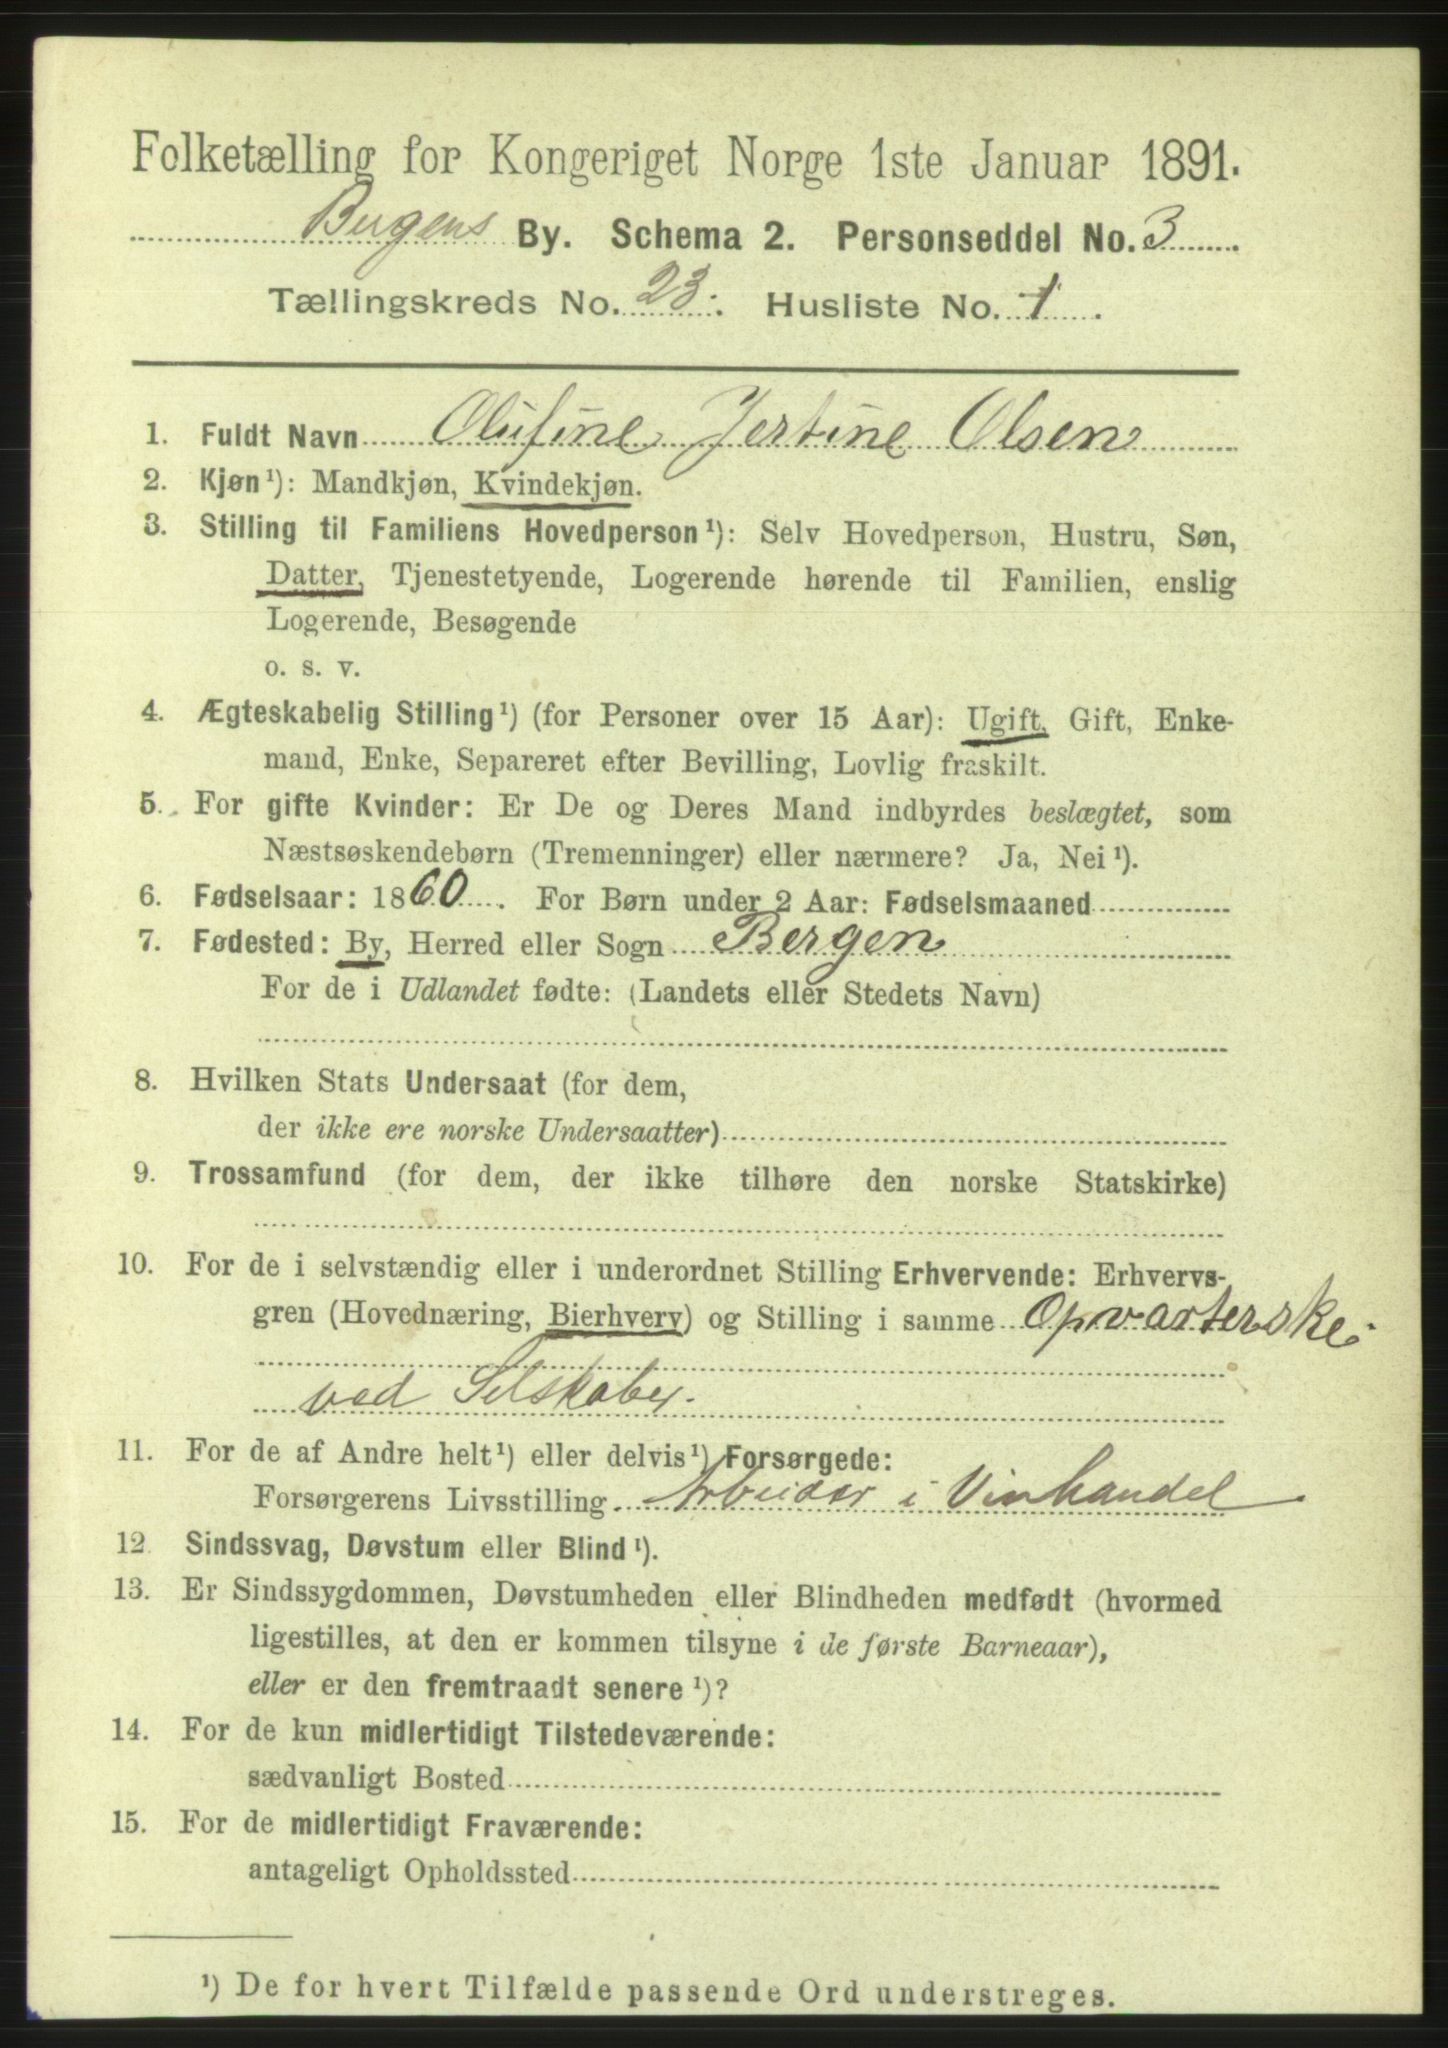 Folketælling for Kongeriget Norge 1ste Januar 1891.
Bergens By. Schema 2. Personseddel No. 3
Tællingskreds No. 23. Husliste No. 1.
1. Fuldt Navn Olufine Jertine Olsen
2. Kjøn ¹): Mandkjøn, Kvindekjøn.
3. Stilling til Familiens Hovedperson ¹): Selv Hovedperson, Hustru, Søn,
Datter, Tjenestetyende, Logerende hørende til Familien, enslig
Logerende, Besøgende
o. s. v.
4. Ægteskabelig Stilling ¹) (for Personer over 15 Aar): Ugift, Gift, Enke-
mand, Enke, Separeret efter Bevilling, Lovlig fraskilt.
5. For gifte Kvinder: Er De og Deres Mand indbyrdes beslægtet, som
Næstsøskendebørn (Tremenninger) eller nærmere? Ja, Nei ¹).
6. Fødselsaar: 1860. For Børn under 2 Aar: Fødselsmaaned
7. Fødested: By, Herred eller Sogn Bergen
For de i Udlandet fødte: (Landets eller Stedets Navn)
8. Hvilken Stats Undersaat (for dem,
der ikke ere norske Undersaatter)
9. Trossamfund (for dem, der ikke tilhøre den norske Statskirke)
10. For de i selvstændig eller i underordnet Stilling Erhvervende: Erhvervs-
gren (Hovednæring, Bierhverv) og Stilling i samme Opvarterske
ved Selskaber.
11. For de af Andre helt ¹) eller delvis ¹) Forsørgede:
Forsørgerens Livsstilling Arbeider i Vinhandel
12. Sindssvag, Døvstum eller Blind ¹).
13. Er Sindssygdommen, Døvstumheden eller Blindheden medfødt (hvormed
ligestilles, at den er kommen tilsyne i de første Barneaar),
eller er den fremtraadt senere ¹)?
14. For de kun midlertidigt Tilstedeværende:
sædvanligt Bosted
15. For de midlertidigt Fraværende:
antageligt Opholdssted
¹) De for hvert Tilfælde passende Ord understreges.